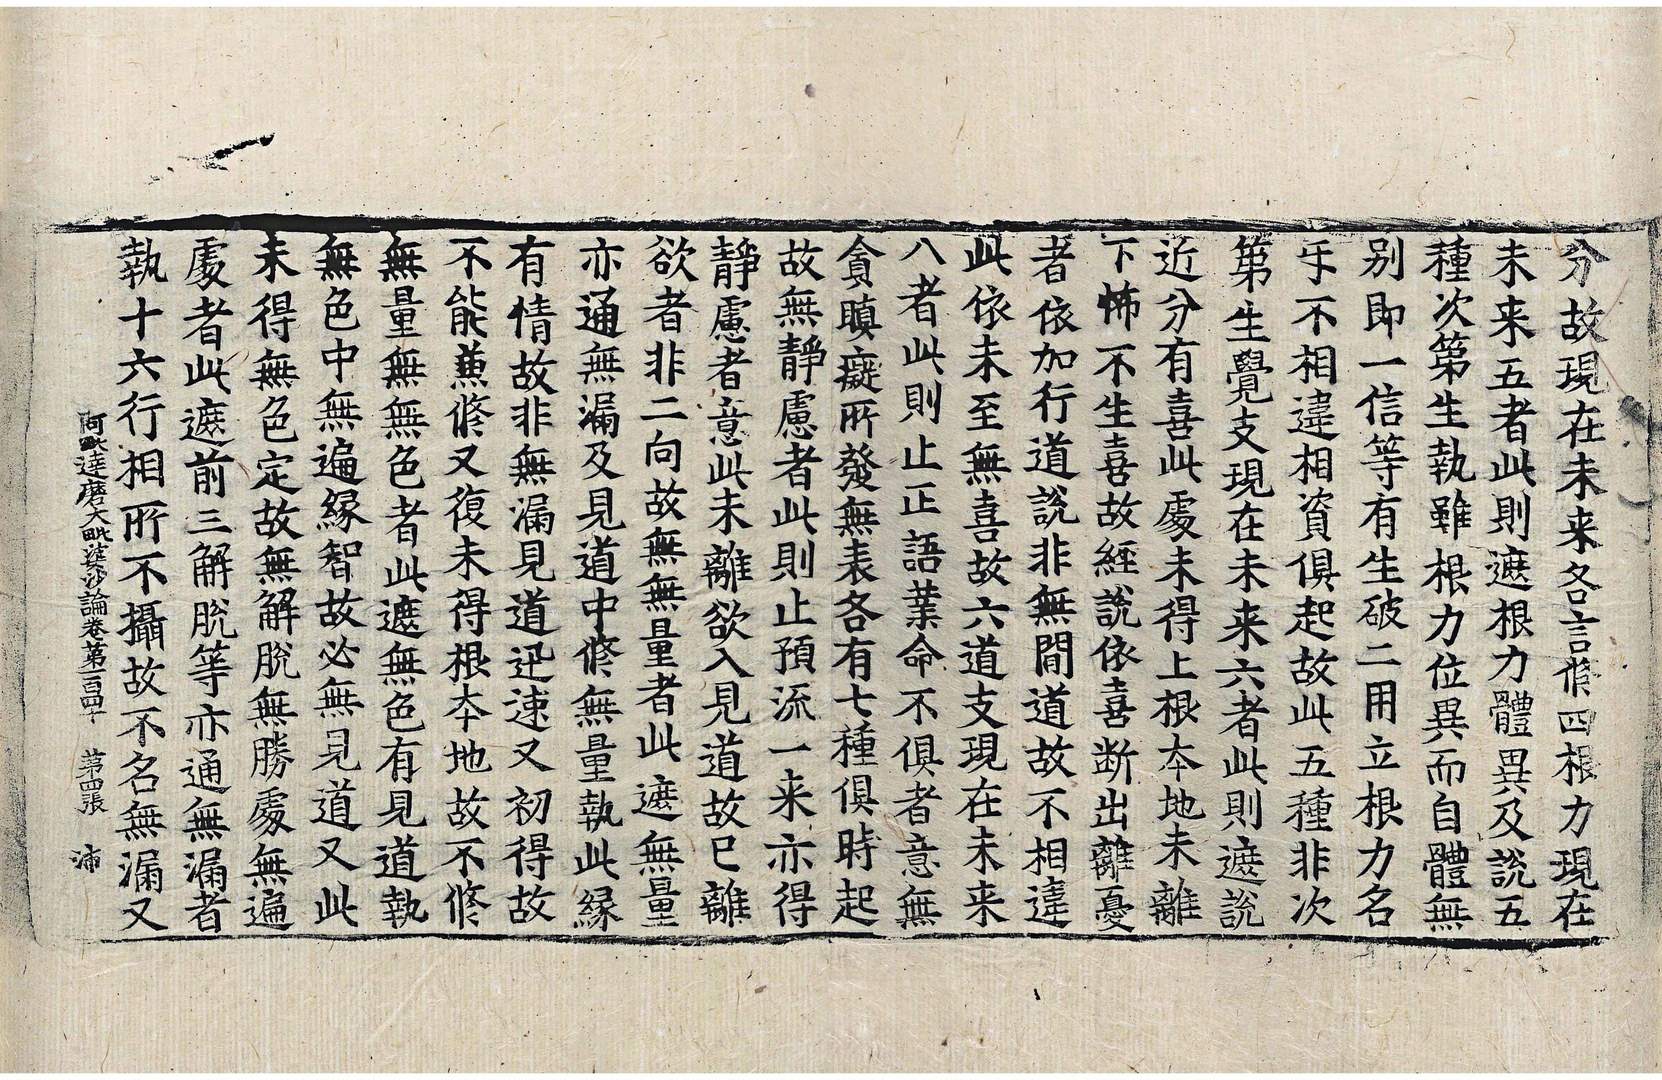 分故現在未来各言脩四根力現在
未来五者此則遮根力體異及說五
種次第生執雖根力位異而自體無
别即一信等有生破二用立根力名
乎不相違相資俱起故此五種非次
第生覺支現在未来六者此則遮説
近分有喜此處未得上根本地未離
下怖不生喜故經說依喜断出離憂
者依加行道説非無間道故不相違
此依未至無喜故六道支現在未来
八者此則止正語業命不俱者意無
貪瞋癡所發無表各有七種俱時起
故無靜慮者此則止預流一来亦得
靜慮者意此未離欲入見道故已離
欲者非二向故無無量者此遮無量
亦通無漏及見道中脩無量執此緣
有情故非無漏見道迅速又初得故
不能兼脩又復未得根本地故不脩
無量無無色者此遮無色有見道執
無色中無遍緣智故必無見道又此
未得無色定故無解脫無勝處無遍
處者此遮前三解脫等亦通無漏者
執十六行相所不攝故不名無漏又
阿毗達磨大毗婆沙論卷第一百四十 第四張 沛